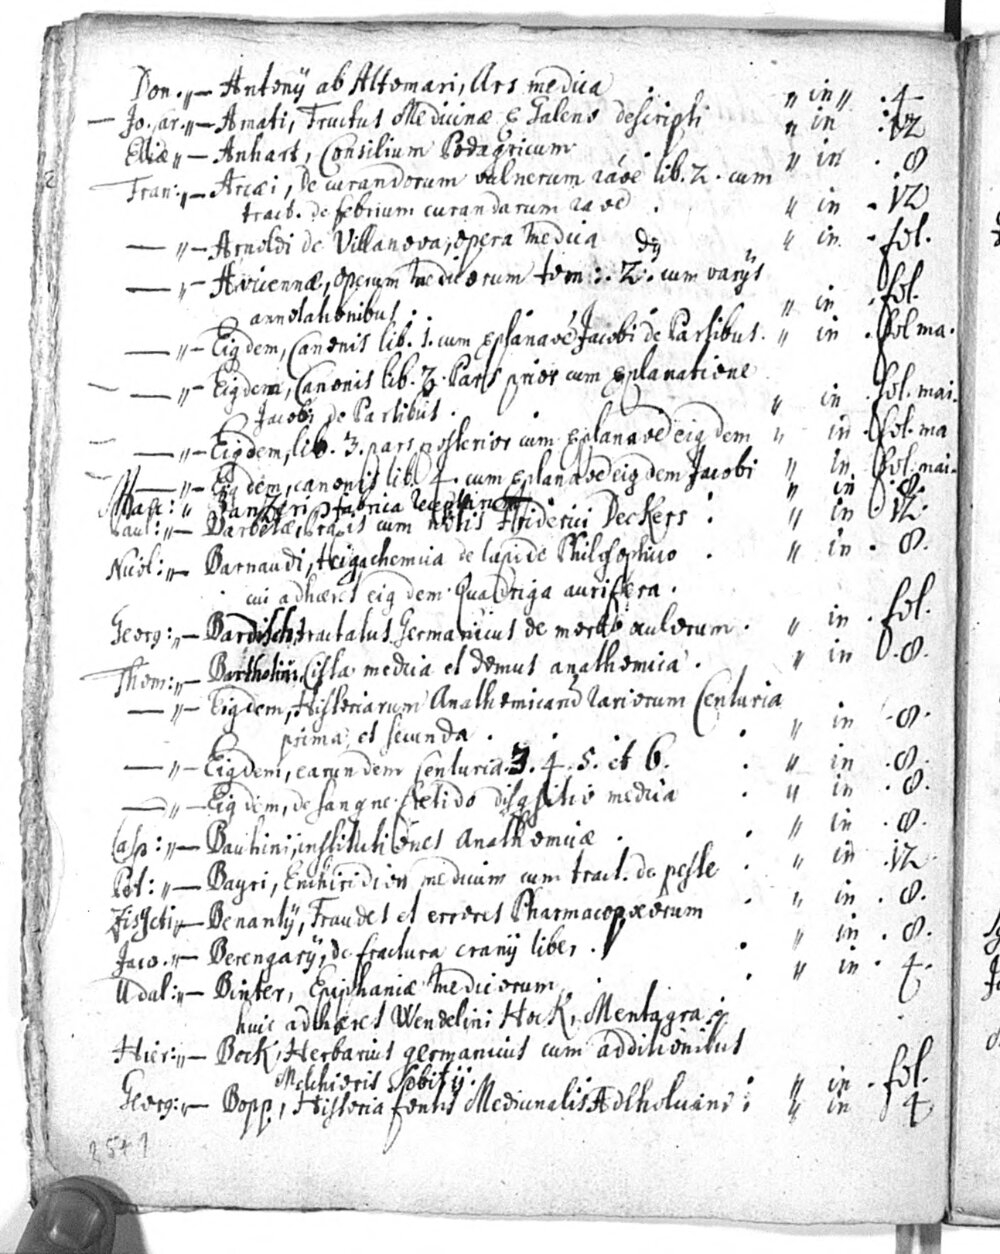 Don. " — Antonÿ ab Altomari, Ars medica " in " . 4
— Jo. ar. " — Amati, Fructus Medicinæ E Galeno descripti " in . 12
Eliæ " — Anhart, Consilium Podagricum . " in . 8
Fran: " — Arcæi, De curandorum vulnerum raoe lib. 2. cum
tract. de febrium curandarum raoe . " in . 12
— " — Arnoldi de Villanova, opera medica " in . fol.
— " — Avicennæ, operum medicorum tom: . 2. cum varÿs
annotationibus . " in . fol.
— " — Eigdem, Canonis lib. 1. cum explanaoe Jacobi de Partibus . " in . fol ma.
— " — Eigdem, Canonis lib. 3. Pars prior cum explanatione
Jacobi de Partibus . " in . fol. mai.
— " — Eigdem, lib. 3. pars posterior cum explanaoe eigdem " in . fol. ma
— " — Eigdem, canonis lib. 4. cum explanaoe eigdem Jacobi " in . fol. mai.
" fabrica " in . 8.
Paul: " — Barbetæ, Praxis cum notis Friderici Deckers . " in . 12.
Nicol: " — Barnaudi, trigachemia de lapide Philosophico . " in . 8.
cui adhæret eigdem Quadriga aurifera .
Georg: " — Bardisch, tractatus Germanicus de morbo oculorum . " in . fol.
Thom: " — Bartholini, Cista medica et domus anathomica . " in . 8.
— " — Eigdem, Historiarum Anathomicarū rariorum Centuria
prima, et secunda . " in . 8.
— " — Eigdem, earundem Centuria . 3. 4. 5. et 6. . " in . 8.
— " — Eigdem, de sangne fœtido disqsitio medica . " in . 8.
Casp: " — Bauhini, institutiones Anathomicæ . . " in . 8.
Pet: " — Bayri, Enchiridion medicum cum tract. de peste . " in . 12
— Benantÿ, Fraudes et errores Pharmacopæorum . " in . 8.
Jaco. " — Berengarÿ, de fractura cranÿ liber . . " in . 8.
Udal: " — Binter, Epiphaniæ medicorum . . " in . 4.
huic adhæret Wendelini Hock, Mentagra .
Hier: " — Bock, Herbarius germanicus cum additionibus
Melchioris Sebitÿ . " in . fol.
Georg: " — Bopp, Historia fontis Medicinalis Adlholvani . " in 4
2541